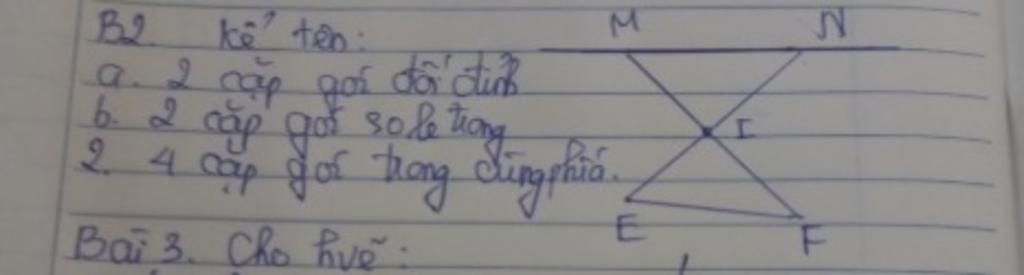 B2. Kể tên:
a. 2 cặp gói đối đỉnh
b. 2 cặp gói so le trong
2. 4 cặp gói trong cùng phía.
M N
I
E F
Bài 3. Cho hvẽ: